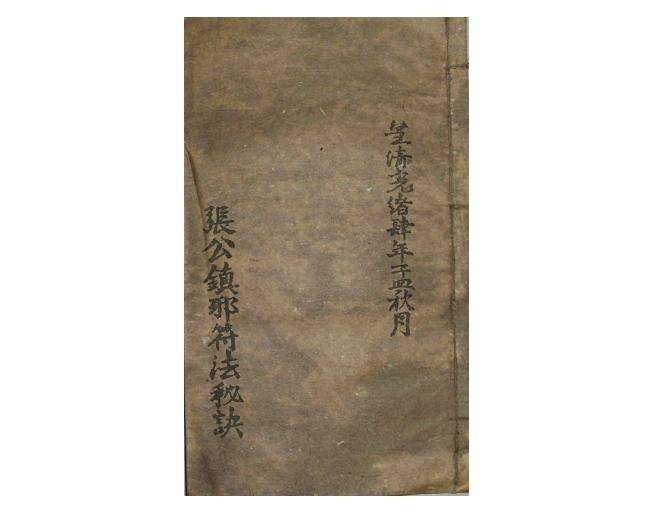 皇清光緒肆年孟秋月
張公鎮邪符法秘訣